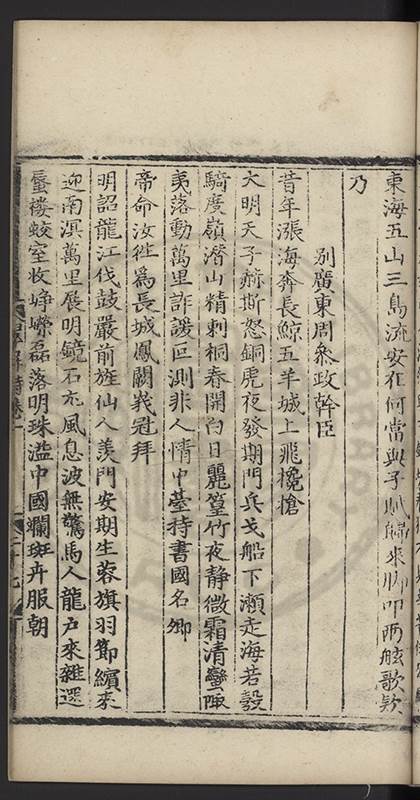 東海五山三島流安在何當與子賦歸來
乃
別廣東周叅政幹臣
昔年漲海奔長鯨五羊城上飛欃槍
大明天子赫斯怒銅虎夜發期門兵戈船下瀨走海若彀
騎度嶺潛山精刺桐春開白日麗篁竹夜靜微霜清蠻陬
夷落動萬里詐諼叵測非人情中臺持書國名卿
帝命汝徃爲長城鳳闕峩冠拜
明詔龍江伐鼓嚴前旌仙人羨門安期生蓉旗羽節繽來
迎南溟萬里展明鏡石尤風息波無驚馬人龍戶來雜遝
蜃樓蛟室收崢嶸磊落明珠溢中國斕斑卉服朝